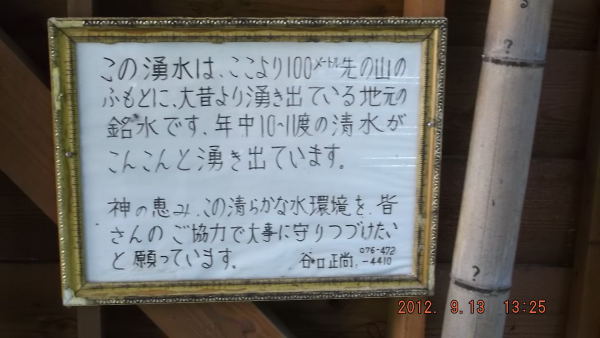 この湧水は、ここより100メートル先の山の
ふもとに、大昔より湧き出ている地元の
銘水です、年中10〜11度の清水が
こんこんと湧き出ています。
神の恵み、この清らかな水環境を、皆
さんのご協力で大事に守りつづけたい
と願っています。 谷口正尚, 076-472
-4410
2012. 9.13 13:25